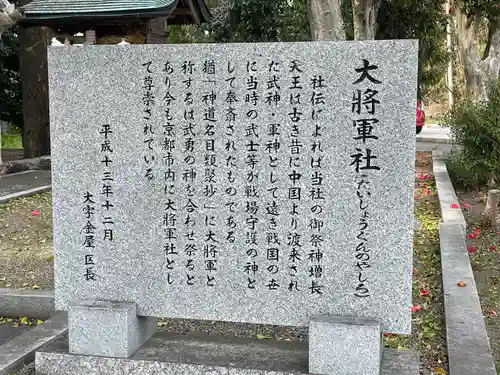 大將軍社(たいしょうぐんのやしろ)
社伝によれば当社の御祭神増長
天王は古き昔に中国より渡来され
た武神・軍神として遠き戦国の世
に当時の武士等が戦場守護の神と
して奉斎されたものである。
猶「神道名目類聚抄」に大將軍と
称するは武勇の神を合わせ祭ると
あり今も京都市内に大將軍社とし
て尊崇されている。
平成十三年十二月
大字金屋区長